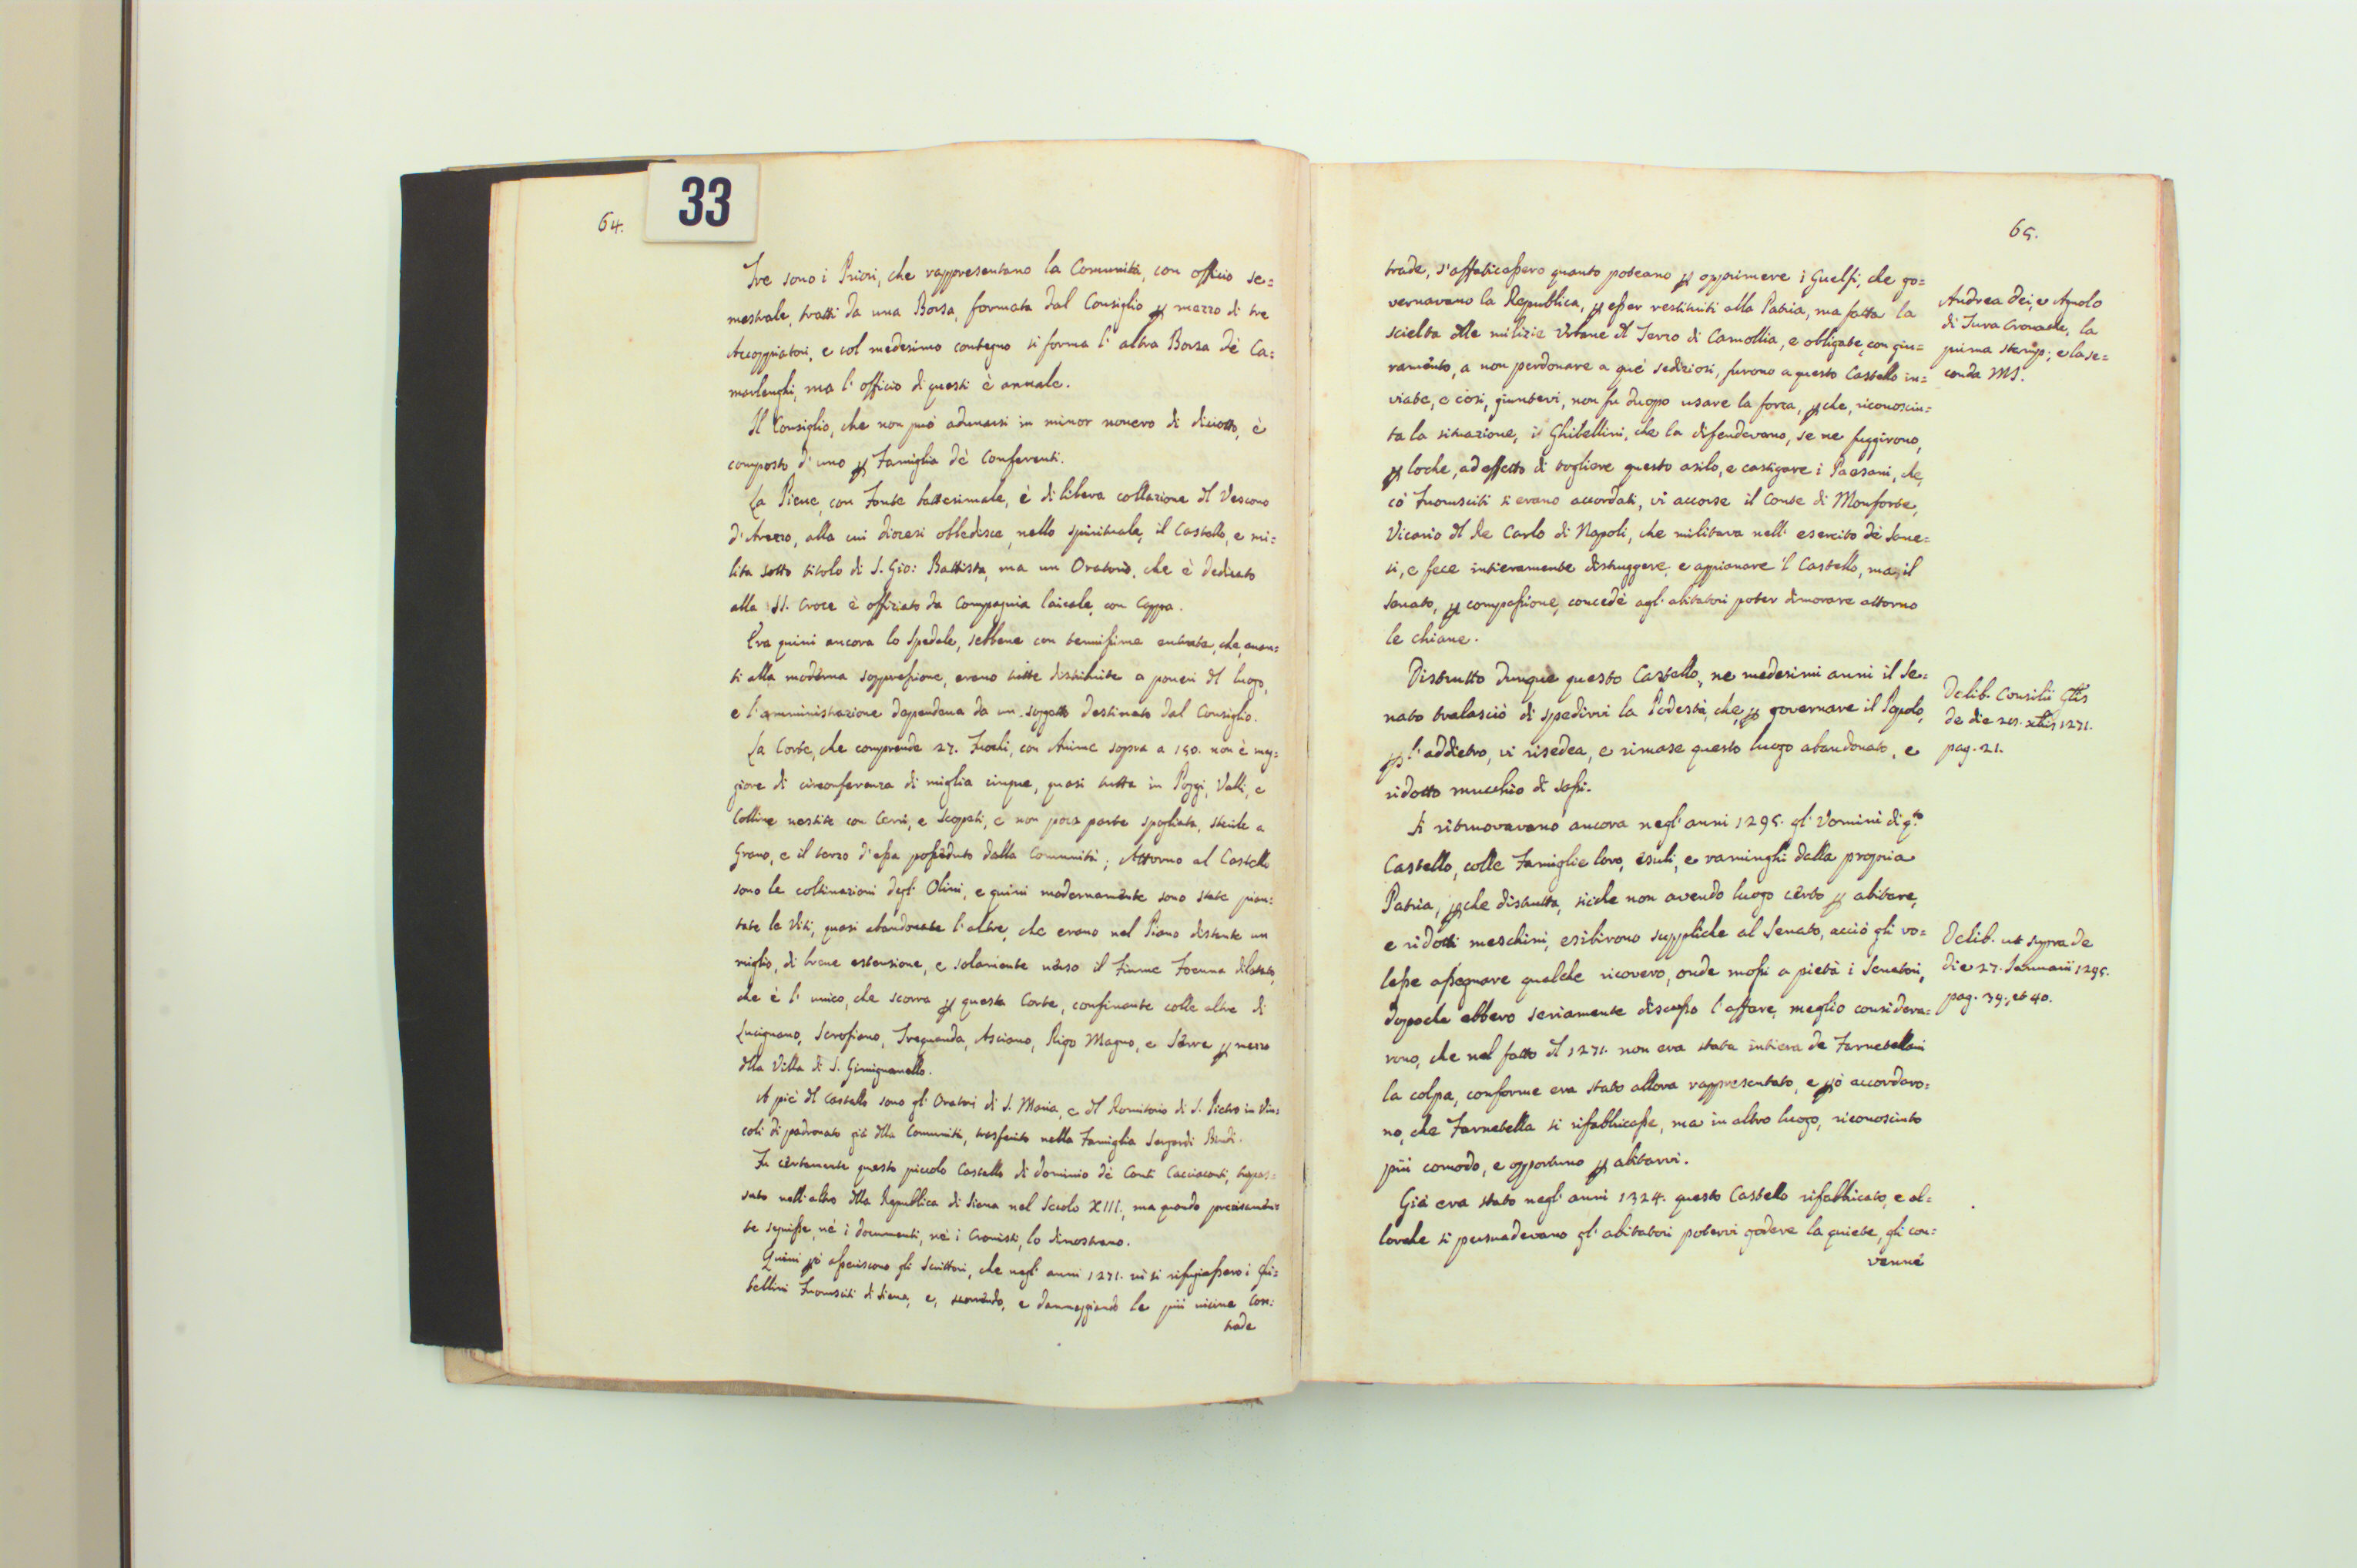 33
64.
Tre sono i Priori, che rappresentano la Comunità, con officio se=
mestrale, tratti da una Borsa, formata dal Consiglio p mezzo di tre
Accoppiatori, e col medesimo contegno si forma l' altra Borsa dè Ca=
marlenghi, ma l' officio di questi è annale.
Il Consiglio, che non può adunarsi in minor novero di diciotto, è
composto d' uno p Famiglia dè Conferenti.
La Pieve, con Fonte battesimale, è di libera collazione dl Vescovo
d' Arezzo, alla cui diocesi obbedisce, nello spirituale, il Castello, e mi=
lita sotto titolo di S. Gio: Battista, ma un Oratorio, che è dedicato
alla SS. Croce è offiziato da Compagnia laicale, con Cappa.
Era quivi ancora lo Spedale, sebbene con tenuissime entrate, che, avan=
ti alla moderna soppressione, erano tutte distribuite a poveri dl luogo,
e l' amministrazione dependeva da un soggetto destinato dal Consiglio.
La Corte, che comprende 27. Fuochi, con Anime sopra a 150. non è mag=
giore di circonferenza di miglia cinque, quasi tutta in Poggi, Valli, e
Colline vestite con Cerri, e Scopeti, e non poca parte spogliata, sterile a
Grano, e il terzo d' essa posseduto dalla Comunità; Attorno al Castello
sono le coltivazioni degl' Olivi, e quivi modernamente sono state pian=
tate le Viti, quasi abandonate l' altre, che erano nel Piano distante un
miglio, di breve estensione, e solamente verso il Fiume Foenna dilatato,
che è l' unico, che scorra p questa Corte, confinante colle altre di
Lucignano, Scrofiano, Trequanda, Asciano, Rigo Magno, e Serre p mezzo
dlla Villa di S. Gimignanello.
A piè dl Castello sono gl' Oratori di S. Maria, e dl Romitorio di S. Pietro in Vin=
coli di padronato già dlla Comunità, trasferito nella Famiglia Sergardi Bindi.
Fu certamente questo piccolo Castello di dominio dè Conti Cacciaconti, trapas=
sato nell' altro dlla Republica di Siena nel Secolo XIII., ma quando precisamen=
te seguisse, nè i documenti, nè i Cronisti, lo dimostrano.
Quivi pò asseriscono gli Scrittori, che negl' anni 1271. vi si rifugiassero i Ghi=
bellini Fuorusciti di Siena, e, scorrendo, e danneggiando le più vicine Con=
trade
65.
trade, s' affaticassero quanto poteano p opprimere i Guelfi, che go=
vernavano la Republica, p esser restituiti alla Patria, ma fatta la
scielta dlle milizie Urbane dl Terzo di Camollia, e obligate, con giu=
ramento, a non perdonare a què sediziosi, furono a questo Castello in=
viate, e così, giuntevi, non fu duopo usare la forza, pche, riconosciu=
ta la situazione, i Ghibellini, che la difendevano, se ne fuggirono,
p loche, ad effetto di togliere questo asilo, e castigare i Paesani, che,
cò Fuorusciti si erano accordati, vi accorse il Conte di Monforte,
Vicario dl Re Carlo di Napoli, che militava nell' esercito dè Sane=
si, e fece intieramente distruggere, e appianare 'l Castello, ma, il
Senato, p compassione, concedè agl' abitatori poter dimorare attorno
le chiane.
Distrutto dunque questo Castello, ne medesimi anni il Se=
nato tralasciò di spedirvi la Podestà, che, p governare il Popolo,
p l' addietro, vi risedea, e rimase questo luogo abandonato, e
ridotto mucchio di sassi.
Si ritruovavano ancora negl' anni 1295. gl' Vomini di q.to
Castello, colle Famiglie loro, esuli, e raminghi dalla propria
Patria, pche distrutta, siche non avendo luogo certo p abitare,
e ridotti meschini, esibirono suppliche al Senato, acciò gli vo=
lesse assegnare qualche ricovero, onde mossi a pietà i Senatori,
dopoche ebbero seriamente discusso l' affare, meglio considera=
rono, che nel fatto dl 1271. non era stata intiera de Farnetellani
la colpa, conforme era stato allora rappresentato, e pò accordaro=
no, che Farnetella si rifabbricasse, ma in altro luogo, riconosciuto
più comodo, e opportuno p abitarvi.
Già era stato negl' anni 1324. questo Castello rifabbricato, e al=
lorche si persuadevano gl' abitatori potervi godere la quiete, gli con=
venné
Andrea Dei, e Agnolo
di Tura Cronache, la
prima stamp; e la se=
conda MS.
Delib. Consilii Gtis
de die 25. xbis 1271.
pag. 21.
Delib. ut supra de
die 27. Januarii 1295.
pag. 39., et 40.